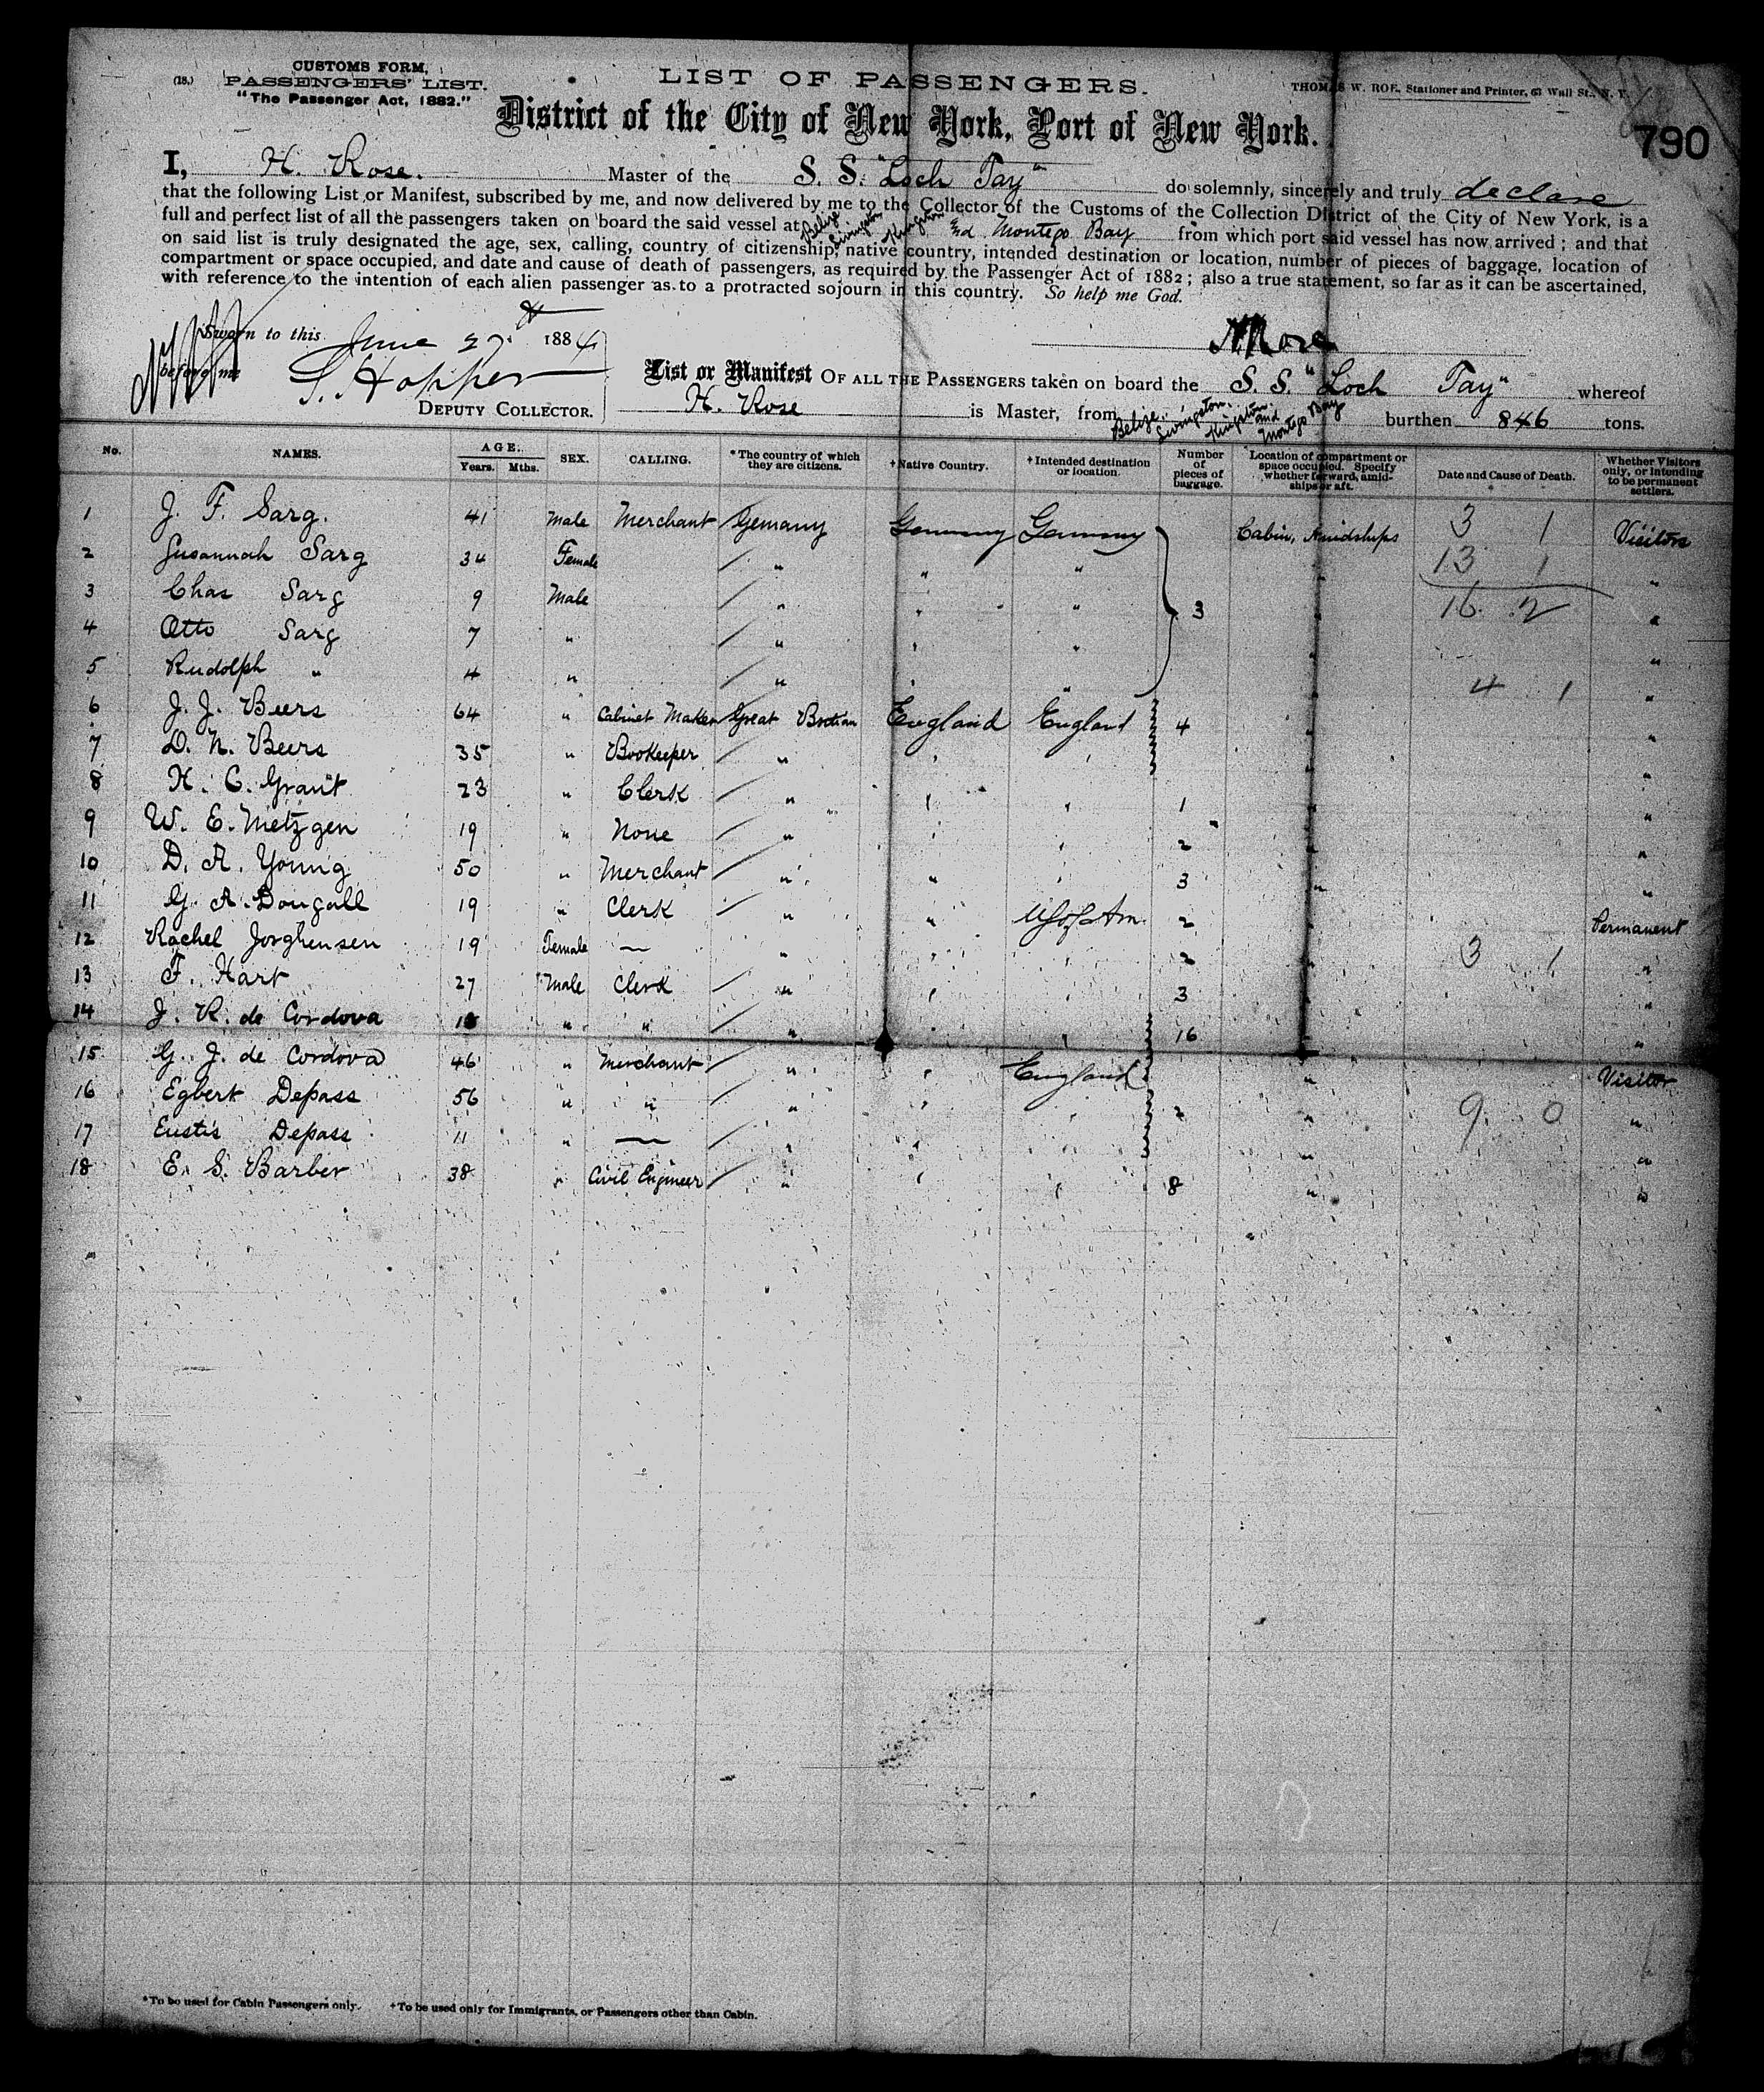 CUSTOMS FORM,
(18.) PASSENGERS' LIST.
"The Passenger Act, 1882."
LIST OF PASSENGERS.
THOMAS W. ROE, Stationer and Printer, 63 Wall St., N. Y.
District of the City of New York, Port of New York.
790
I, H. Rose. Master of the S. S. "Loch Tay" do solemnly, sincerely and truly declare
that the following List or Manifest, subscribed by me, and now delivered by me to the Collector of the Customs of the Collection District of the City of New York, is a
full and perfect list of all the passengers taken on board the said vessel at Belize Livingston Kingston and Montego Bay from which port said vessel has now arrived; and that
on said list is truly designated the age, sex, calling, country of citizenship, native country, intended destination or location, number of pieces of baggage, location of
compartment or space occupied, and date and cause of death of passengers, as required by the Passenger Act of 1882; also a true statement, so far as it can be ascertained,
with reference to the intention of each alien passenger as to a protracted sojourn in this country. So help me God.
Sworn to this June 27th 1884
H Rose
before me S. Hopper
DEPUTY COLLECTOR.
List or Manifest OF ALL THE PASSENGERS taken on board the S. S. "Loch Tay" whereof
H. Rose is Master, from Belize, Livingston, Kingston and Montego Bay burthen 846 tons.
No. NAMES. AGE. Years. Mths. SEX. CALLING. *The country of which they are citizens. †Native Country. †Intended destination or location. Number of pieces of baggage. Location of compartment or space occupied. Specify whether forward, amidships or aft. Date and Cause of Death. Whether Visitors only, or intending to be permanent settlers.
1 J. F. Sarg. 41 Male Merchant Gemany Germany Germany Cabin, Amidships 3 1 Visitors
2 Susannah Sarg 34 Female " " " " 13 1 "
3 Chas Sarg 9 Male " " " 3 " 16 2 "
4 Otto Sarg 7 " " " " " "
5 Rudolph " 4 " " " " " 4 1 "
6 J. J. Beers 64 " Cabinet Maker Great Britian England England 4 " "
7 D. N. Beers 35 " Bookeeper " " " " "
8 H. C. Grant 23 " Clerk " " " 1 " "
9 W. E. Metzgen 19 " None " " " 2 " "
10 D. A. Young 50 " Merchant " " " 3 " "
11 G. A. Dougall 19 " Clerk " " U S of Am. 2 " Permanent
12 Rachel Jorghensen 19 Female — " " " 2 " 3 1 "
13 F. Hart 27 Male Clerk " " " 3 " "
14 J. R. de Cordova " " " " " 16 " "
15 G. J. de Cordova 46 " Merchant " " England " Visitor
16 Egbert Depass 56 " " " " " 2 " 9 0 "
17 Eustis Depass 11 " — " " " " "
18 E. S. Barber 38 " Civil Engineer " " " 8 " "
*To be used for Cabin Passengers only. †To be used only for Immigrants, or Passengers other than Cabin.